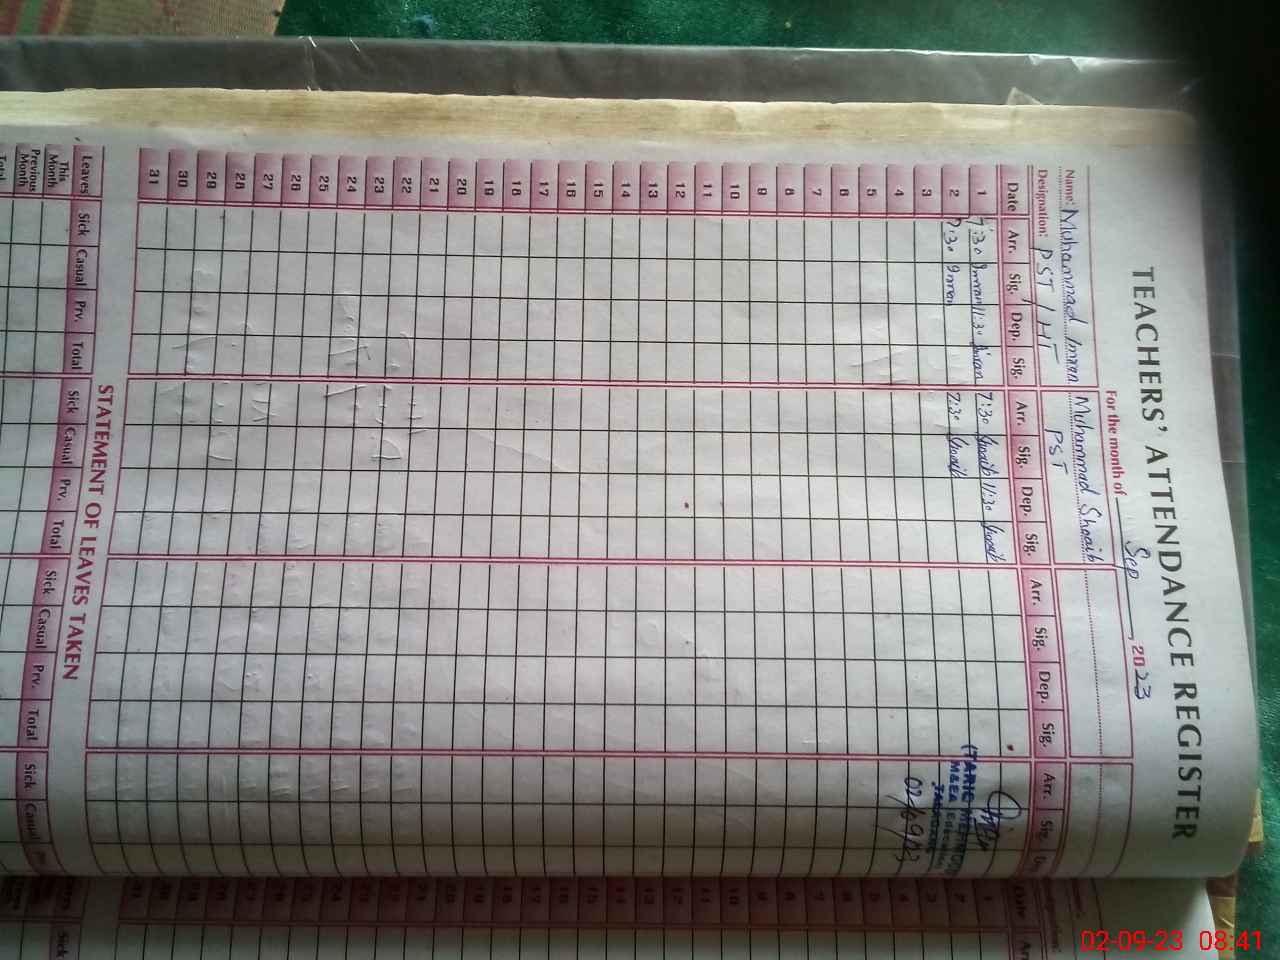 TEACHERS' ATTENDANCE REGISTER
For the month of Sep, 2023
Name: Muhammad Imran Muhammad Shoaib
Designation: PST / HT PST
Date Arr. Sig. Dep. Sig. Arr. Sig. Dep. Sig. Arr. Sig. Dep. Sig. Arr. Sig.
1 7:30 Imran 11:30 Imran 7:30 Shoaib 11:30 Shoaib
2 7:30 Imran 7:30 Shoaib
3
4
5
6
7
8
9
10
11
12
13
14
15
16
17
18
19
20
21
22
23
24
25
26
27
28
29
30
31
M&EA
02/09/23
STATEMENT OF LEAVES TAKEN
Leaves Sick Casual Prv. Total Sick Casual Prv. Total Sick Casual Prv. Total Sick Casual
This Month
Previous Month
Total
02-09-23 08:41